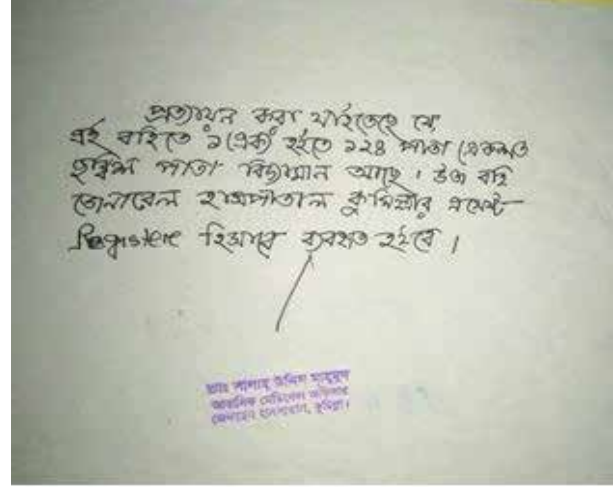 প্রত্যয়ন করা যাইতেছে যে
এই বহিতে ১(এক) হইতে ১২৪ পাতা (একশত
পাতা বিদ্যমান আছে। উক্ত বহি
জেনারেল হাসপাতাল কুমিল্লার
Registere হিসাবে ব্যবহৃত হইবে।
ডাঃ সালাহ্ উদ্দিন মাহমুদ
আবাসিক মেডিকেল অফিসার
জেনারেল হাসপাতাল, কুমিল্লা।